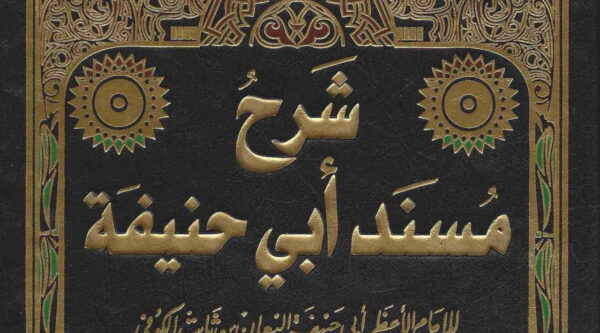 شَرحُ
مُسنَد أبي حنيفَة
للإمام الأعظم أبي حنيفة النعمان بن ثابت الكوفي